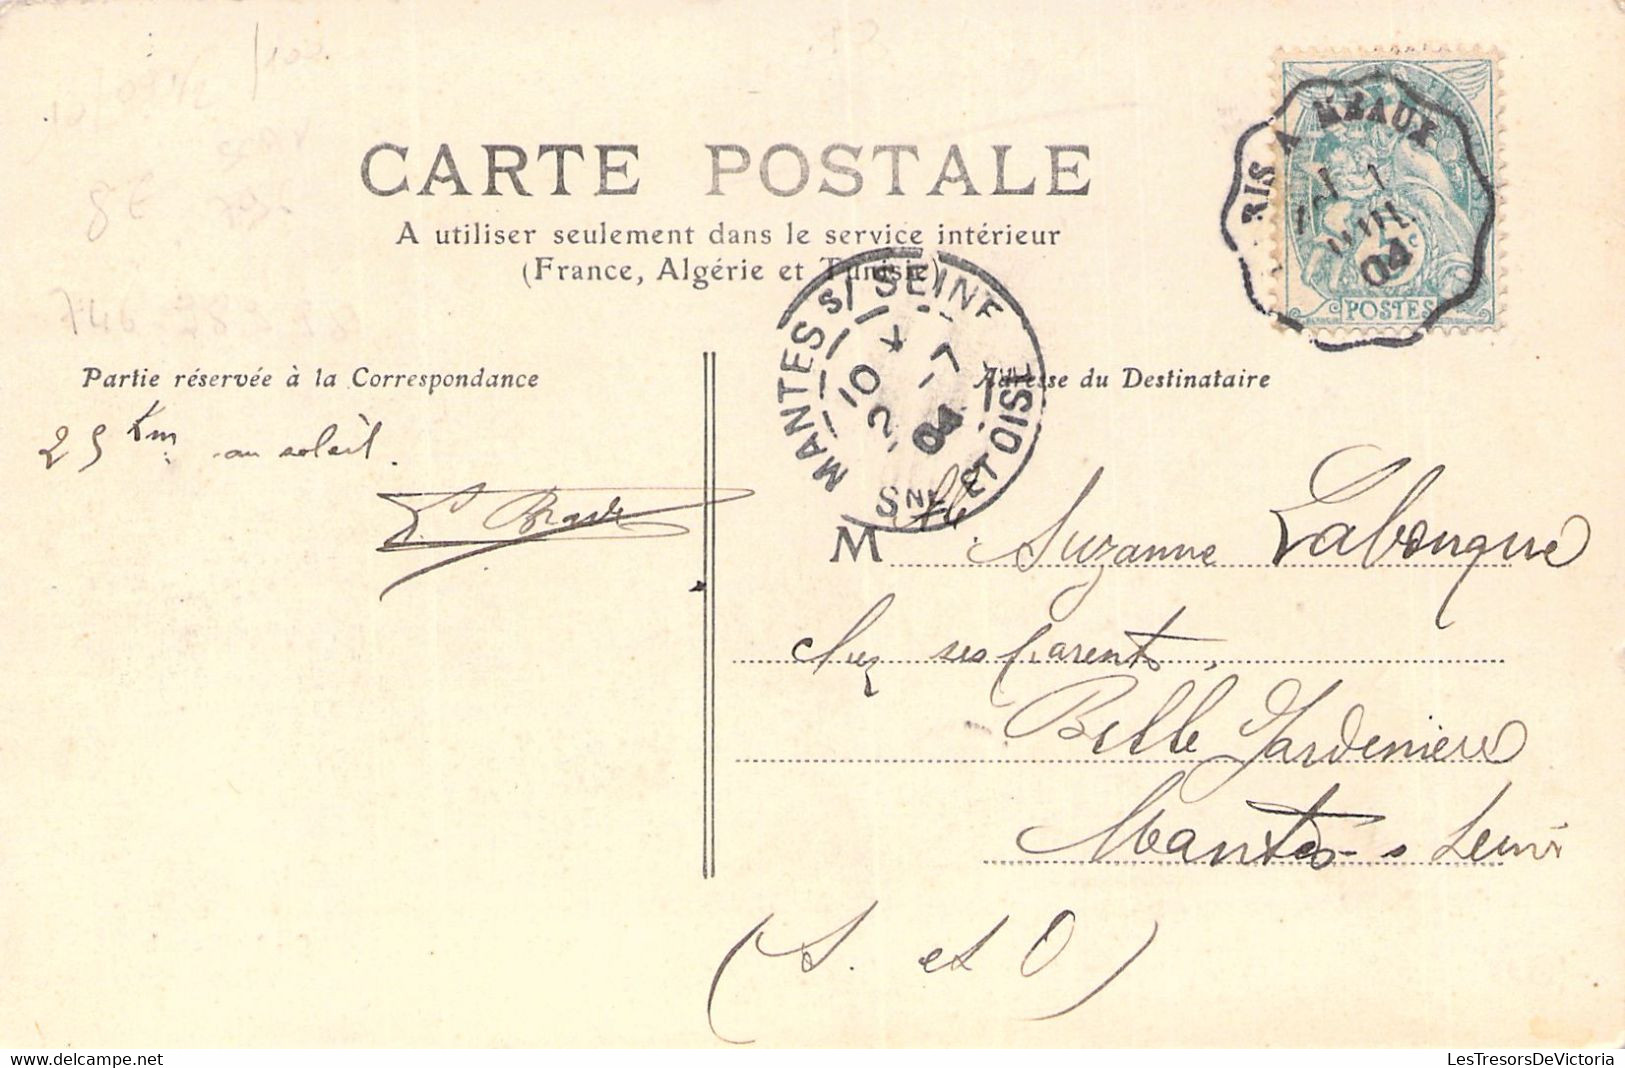 CARTE POSTALE
A utiliser seulement dans le service intérieur
(France, Algérie et Tunisie)
RIS A MEAUX
1
JUIL
04
5c
POSTES
MANTES S/ SEINE
10
2 -7
04
SNE ET OISE
Partie réservée à la Correspondance
Adresse du Destinataire
25 Km au soleil.
M lle Suzanne Labonque
chez ses Parents,
Belle Jardinière
Mantes s Seine
(S. et O)
25.clf
LesTresorsDeVictoria